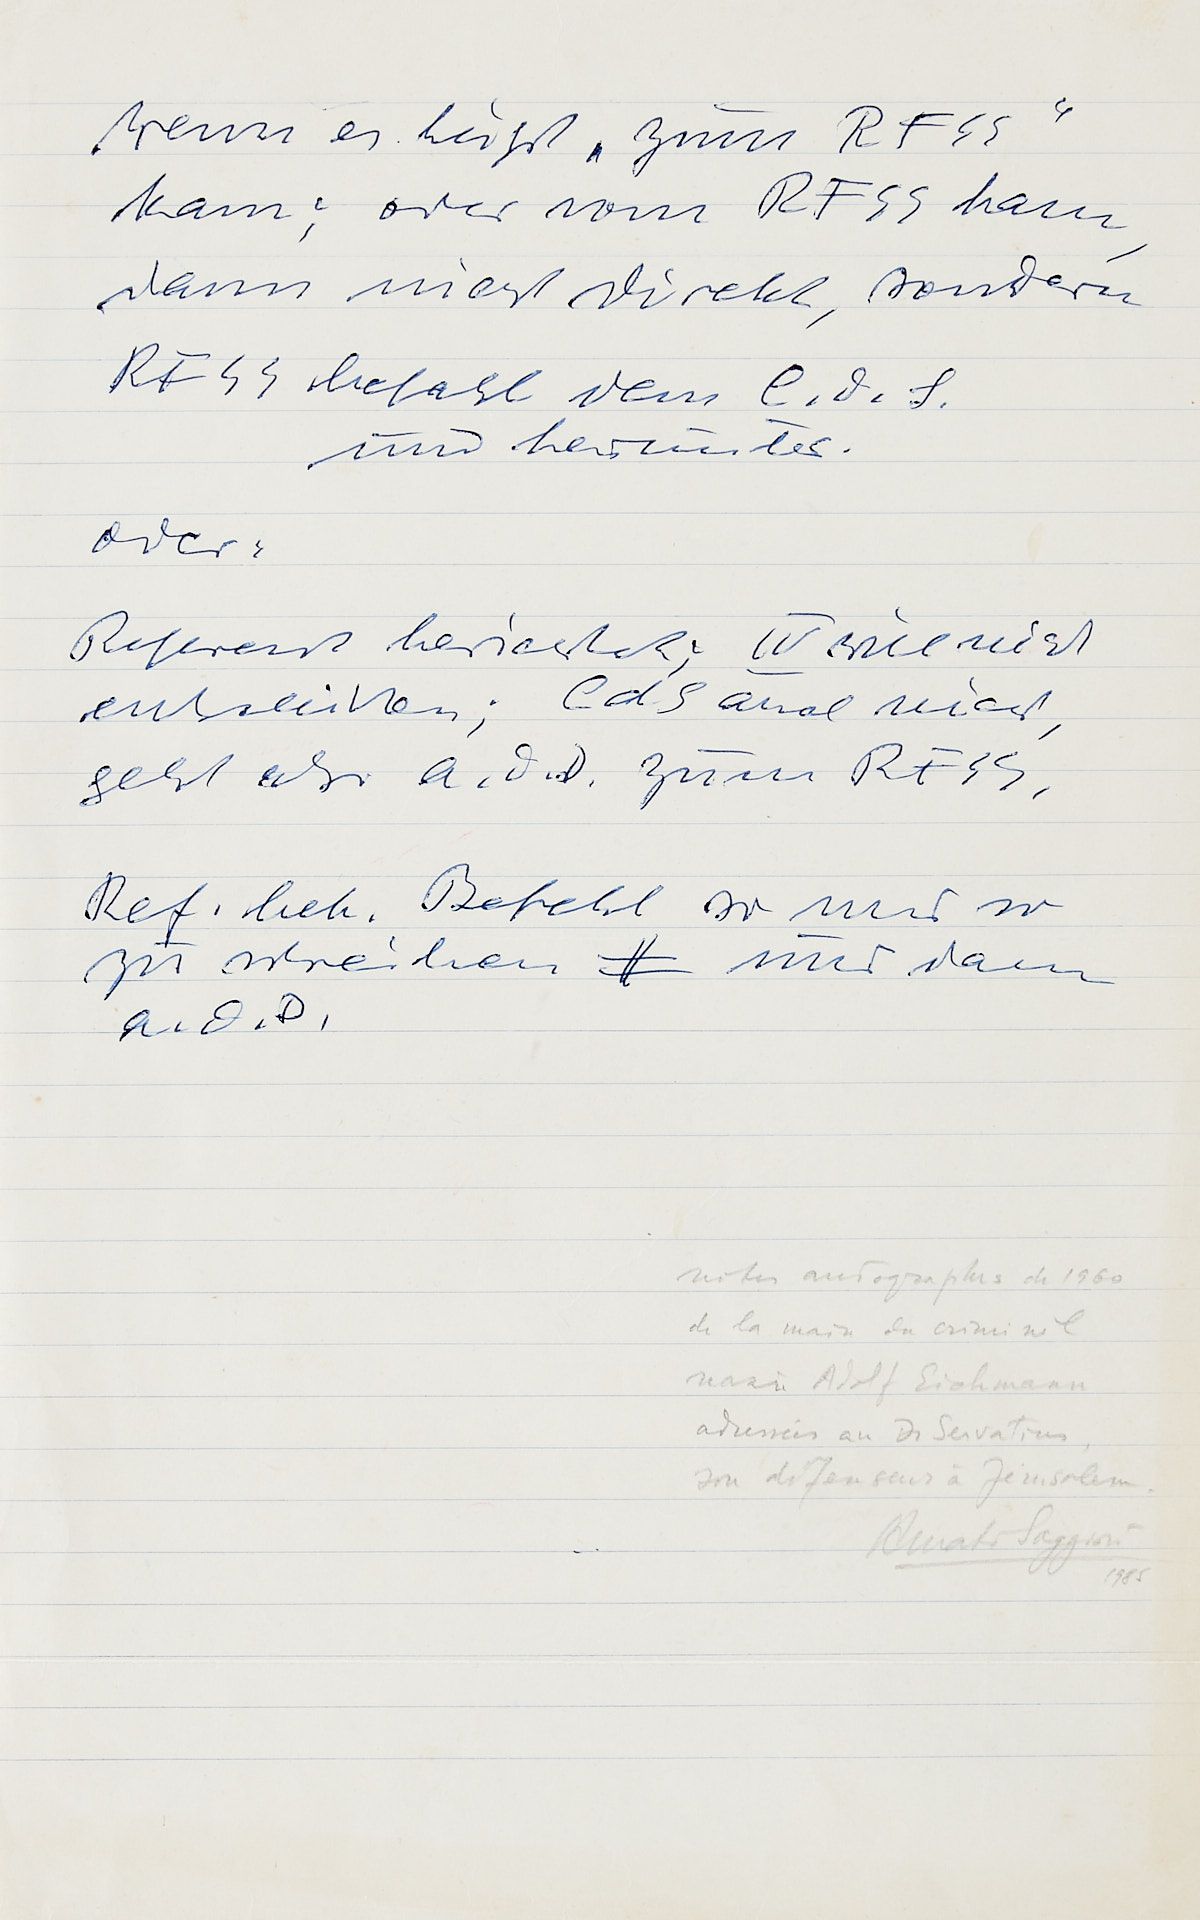 wenn es heißt „zum RFSS"
kam; oder vom RFSS kam,
dann nicht direkt, sondern
RFSS befahl dem C.d.S.
und herunter.
oder:
Referent berichtet; IV will nicht
entscheiden; CdS auch nicht,
geht also a.d.D. zum RFSS.
Ref. bek. Befehl so und so
zu schreiben und dann
a.d.D.
notes autographes de 1960
de la main du criminel
nazie Adolf Eichmann
adressées au Dr Servatius,
son défenseur à Jérusalem.
Renato Saggiori
1985